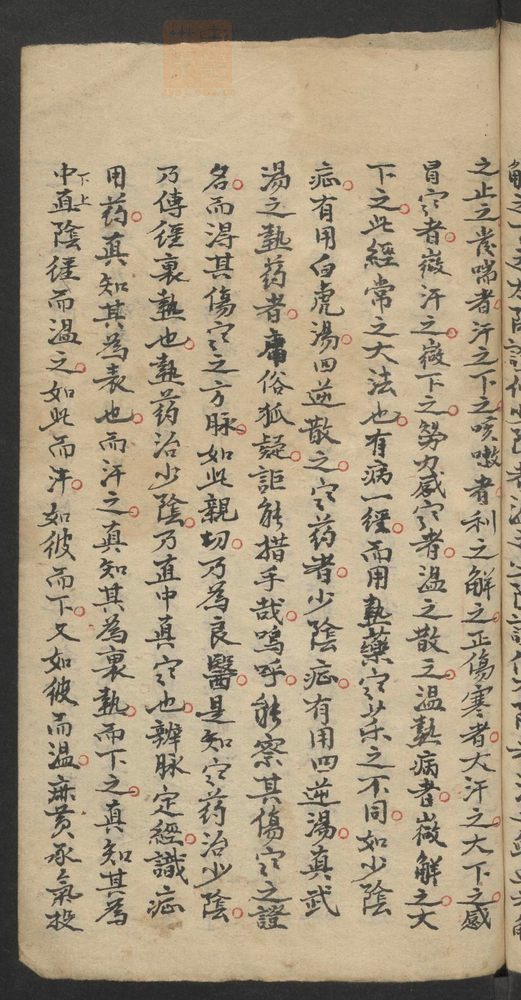 之止之嵗喘者汗之下之咳嗽者利之解之正傷寒者大汗之大下之感
冒寒者微汗之微下之勞力感寒者温之散之温熱病者微解之大
下之此經常之大法也有病一經而用熱藥寒药之不同如少陰
症有用白虎湯四逆散之寒药者少陰症有用四逆湯真武
湯之熱药者庸俗狐疑詎能措手哉嗚呼能察其傷寒之證
名而得其傷寒之方脉如此親切乃為良醫是知寒药治少陰
乃傳經裏熱也熱药治少陰乃直中真寒也辨脉定經識症
用药真知其為表也而汗之真知其為裏熱而下之真知其為
中直陰經而温之如此而汗如彼而下又如彼而温麻黄承氣投
下上